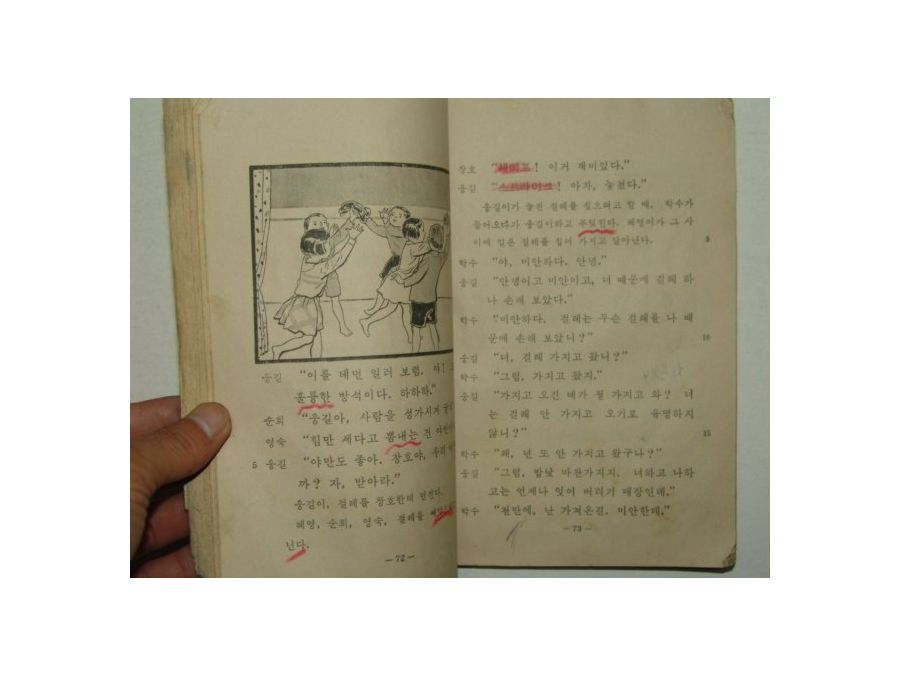 웅길 "이를 테면 일러 보렴. 야!
훌륭한 방석이다. 하하하."
순희 "웅길아, 사람을 성가시게
영숙 "힘만 세다고 뽐내는 건
5 웅길 "야만도 좋아. 창호야, 우리
까? 자, 받아라."
웅길이, 걸레를 창호한테 던진다.
혜영, 순희, 영숙, 걸레를
닌다.
—72—
창호 "세이프! 이거 재미있다."
웅길 "스트라이크! 아차, 놓쳤다."
웅길이가 놓친 걸레를 집으려고 할 때, 학수가
들어오다가 웅길이하고 부딪친다. 혜영이가 그 사
이에 얼른 걸레를 집어 가지고 달아난다. 5
학수 "야, 미안하다. 안녕."
웅길 "안녕이고 미안이고, 너 때문에 걸레 하
나 손해 보았다."
학수 "미안하다. 걸레는 무슨 걸레를 나 때
문에 손해 보았니?" 10
웅길 "너, 걸레 가지고 왔니?"
학수 "그럼, 가지고 왔지."
웅길 "가지고 오긴 네가 뭘 가지고 와? 너
는 걸레 안 가지고 오기로 유명하지
않니?" 15
학수 "왜, 넌 또 안 가지고 왔구나?"
웅길 "그럼, 밤낮 마찬가지지. 너하고 나하
고는 언제나 잊어 버리기 대장인데."
학수 "천만에, 난 가져온걸. 미안한데."
—73—